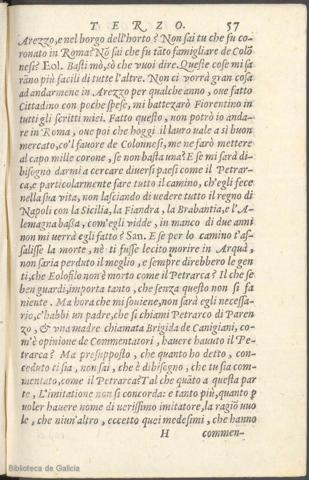 TERZO. 57
Arezzo, e nel borgo dell'horto? Non sai tu che fu co-
ronato in Roma? Nō sai che fu tāto famigliare de Colō
nesi? Eol. Bastì mò, sò che vuoi dire. Queste cose mi sa
ràno più facili di tutte l'altre. Non ci vorrà gran cosa
ad andarmene in Arezzo per qualche anno, oue fatto
Cittadino con poche spese, mi battezarò Fiorentino in
tutti gli scritti miei. Fatto questo, non potrò io anda-
re in Roma, oue poi che hoggi il lauro uale a sì buon
mercato, co'l fauore de Colonnesi, me ne farò mettere
al capo mille corone, se non basta una? E se mi sarà di-
bisogno darmi a cercare diuersi paesi come il Petrar-
ca, e particolarmente fare tutto il camino, ch'egli fece
nella sua vita, non lasciando di uedere tutto il regno di
Napoli con la Sicilia, la Fiandra, la Brabantia, e l'A-
lemagna bassa, com'egli uidde, in manco di due anni
non mi uerrà egli fatto? San. E se per lo camino t'as-
salisse la morte, nè ti fusse lecito morire in Arquà,
non saria perduto il meglio, e sempre direbbero le gen
ti, che Eolofilo non è morto come il Petrarca? Il che se
ben guardi, importa tanto, che senza questo non si fa
niente. Ma hora che mi souiene, non sarà egli necessa-
rio, c'habbi un padre, che si chiami Petrarco di Paren
zo, & vna madre chiamata Brigida de Canigiani, co-
m'è opinione de Commentatori, hauere hauuto il Pe-
trarca? Ma presupposto, che quanto ho detto, con-
ceduto ti sia, non sai, che è dibisogno, che tu sia com-
mentato, come il Petrarca? Tal che quāto a questa par
te, L'imitatione non si concorda: e tanto più, quanto p
uoler hauere nome di uerissimo imitatore, la ragiō uuo
le, che niun'altro, eccetto quei medesimi, che hanno
H commen-
Biblioteca de Galicia